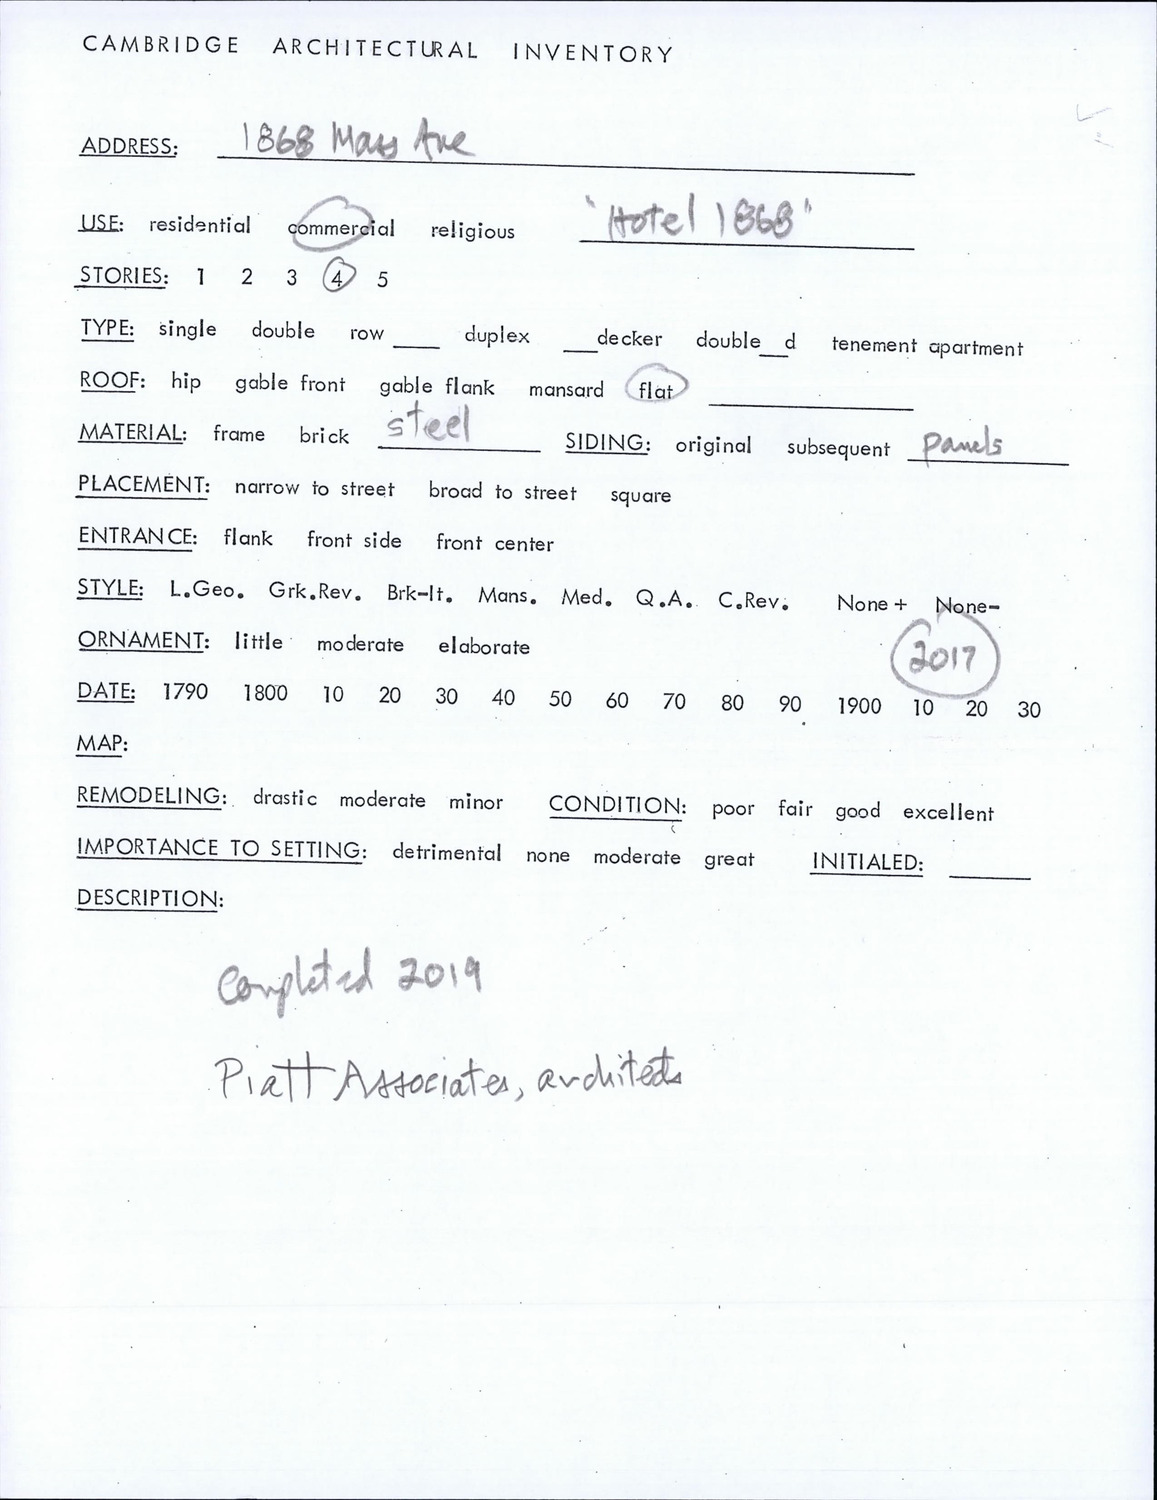 CAMBRIDGE ARCHITECTURAL INVENTORY
ADDRESS: 1868 Mass Ave
USE: residential commercial religious "Hotel 1868"
STORIES: 1 2 3 4 5
TYPE: single double row ____ duplex ___decker double___d tenement apartment
ROOF: hip gable front gable flank mansard flat
MATERIAL: frame brick steel SIDING: original subsequent panels
PLACEMENT: narrow to street broad to street square
ENTRANCE: flank front side front center
STYLE: L.Geo. Grk.Rev. Brk-It. Mans. Med. Q.A. C.Rev. None+ None-
ORNAMENT: little moderate elaborate 2017
DATE: 1790 1800 10 20 30 40 50 60 70 80 90 1900 10 20 30
MAP:
REMODELING: drastic moderate minor CONDITION: poor fair good excellent
IMPORTANCE TO SETTING: detrimental none moderate great INITIALED: ____
DESCRIPTION:
Completed 2019
Piatt Associates, architects